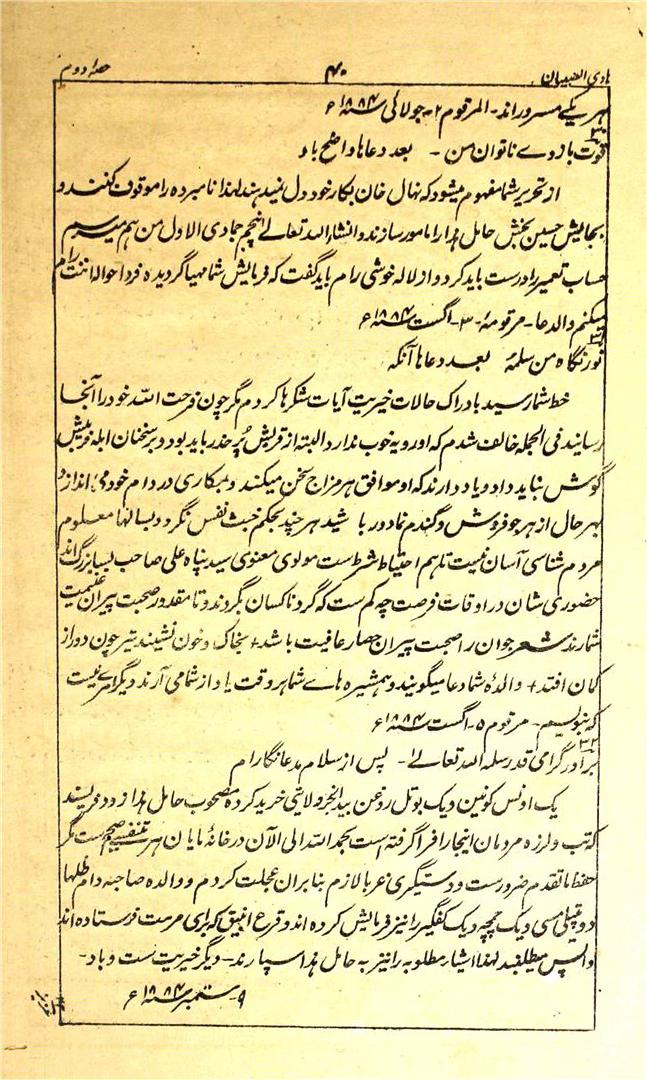 هادی الصبیان ۴۰ حصهٔ دوم
هر یکے مسرور اند - المرقوم ۲ - جولائی سنه ۱۸۸۴ ء
۳۰
قوت بازوے ناتوان من - بعد دعاها واضح باد
از تحریر شما مفهوم میشود که نهال خان بکار خود دل نمیدهند لهذا نامبرده را موقوف کنند و
بجالیش حسین بخش حامل هذا را مامور سازند و انشاء الله تعالے پنجم جمادی الاول من هم میرسم
حساب تعمیر را درست باید کرد و از لاله خوشی رام باید گفت که فرمایش شما مهیا گردیده فردا حواله اننت رام
میکنم والدعا - مرقومهٔ ۳ - اگست سنه ۱۸۸۴ ء
۳۱
نور نگاه من سلمهٔ بعد دعاها آنکه
خط شما رسید بادراک حالات خیریت آیات شکرها کردم مگر چون فرحت الله خود را آنجا
رسانید فی الجمله خائف شدم که او رویه خوب ندارد البته از قریش پر حذر باید بود و بسخنان ابله فریبش
گوش نباید داد و یاد دارند که او موافق هر مزاج سخن میکند و بمکاری در دام خود می اندازد
بهر حال از هر جو فروش و گندم نما دور باشید هر چند بحکم خبث نفس نگردد بسالها معلوم
مردم شناسی آسان نیست تاهم احتیاط شرط ست مولوی معنوی سید پناه علی صاحب بسیار بزرگ اند
حضوری شان در اوقات فرصت چه کم ست که گرد ناکسان بگردند و تا مقدور صحبت پیران غنیمت
شمارند شعر جوان را صحبت پیران حصار عافیت باشد + بخاک و خون نشیند تیر چون دور از
کمان افتد + والدهٔ شما دعا میگویند و همشیره هاے شما هر وقت یاد از شما می آرند دیگر امرے نیست
که بنویسم - مرقوم ۵ - اگست سنه ۱۸۸۴ ء
۳۲
برادر گرامی قدر سلمه الله تعالے - پس از سلام مدعا نگارام
یک اونس کونین و یک بوتل روغن بید انجیر ولایتی خرید کرده مصحوب حامل هذا زود فریسند
که تب و لرزه مردمان اینجا را فرا گرفته است بحمد الله الی الآن در خانهٔ مایان هر متنفسے صحیح ست مگر
حفظ ماتقدم ضرورست و دستگیری غربا لازم بنابران عجلت کردم و والده صاحبه دام ظلها
دو پتیلی مسی و یک چمچه و یک کفگیر را نیز فرمایش کرده اند و قرع انبیق که برای مرمت فرستاده اند
واپس میطلبند لهذا اشیاء مطلوبه را نیز به حامل هذا سپارند - دیگر خیریت ست و باد -
۹ - ستمبر سنه ۱۸۸۴ ء